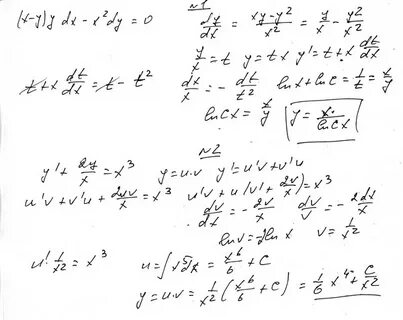 №1
(x-y)y dx - x²dy = 0    dy/dx = (xy-y²)/x² = y/x - y²/x²
y/x = t   y = tx   y' = t + x dt/dx
t + x dt/dx = t - t²    dx/x = - dt/t²   lnx + lnC = 1/t = x/y
lnCx = x/y   y = x/lnCx
№2
y' + 2y/x = x³    y = u·v   y' = u'v + v'u
u'v + v'u + 2uv/x = x³   u'v + u(v' + 2v/x) = x³
dv/dx = - 2v/x   dv/v = -2dx/x
lnv = -2ln x   v = 1/x²
u' 1/x² = x³   u = ∫x⁵dx = x⁶/6 + C
y = u·v = 1/x² (x⁶/6 + C) = 1/6 x⁴ + C/x²